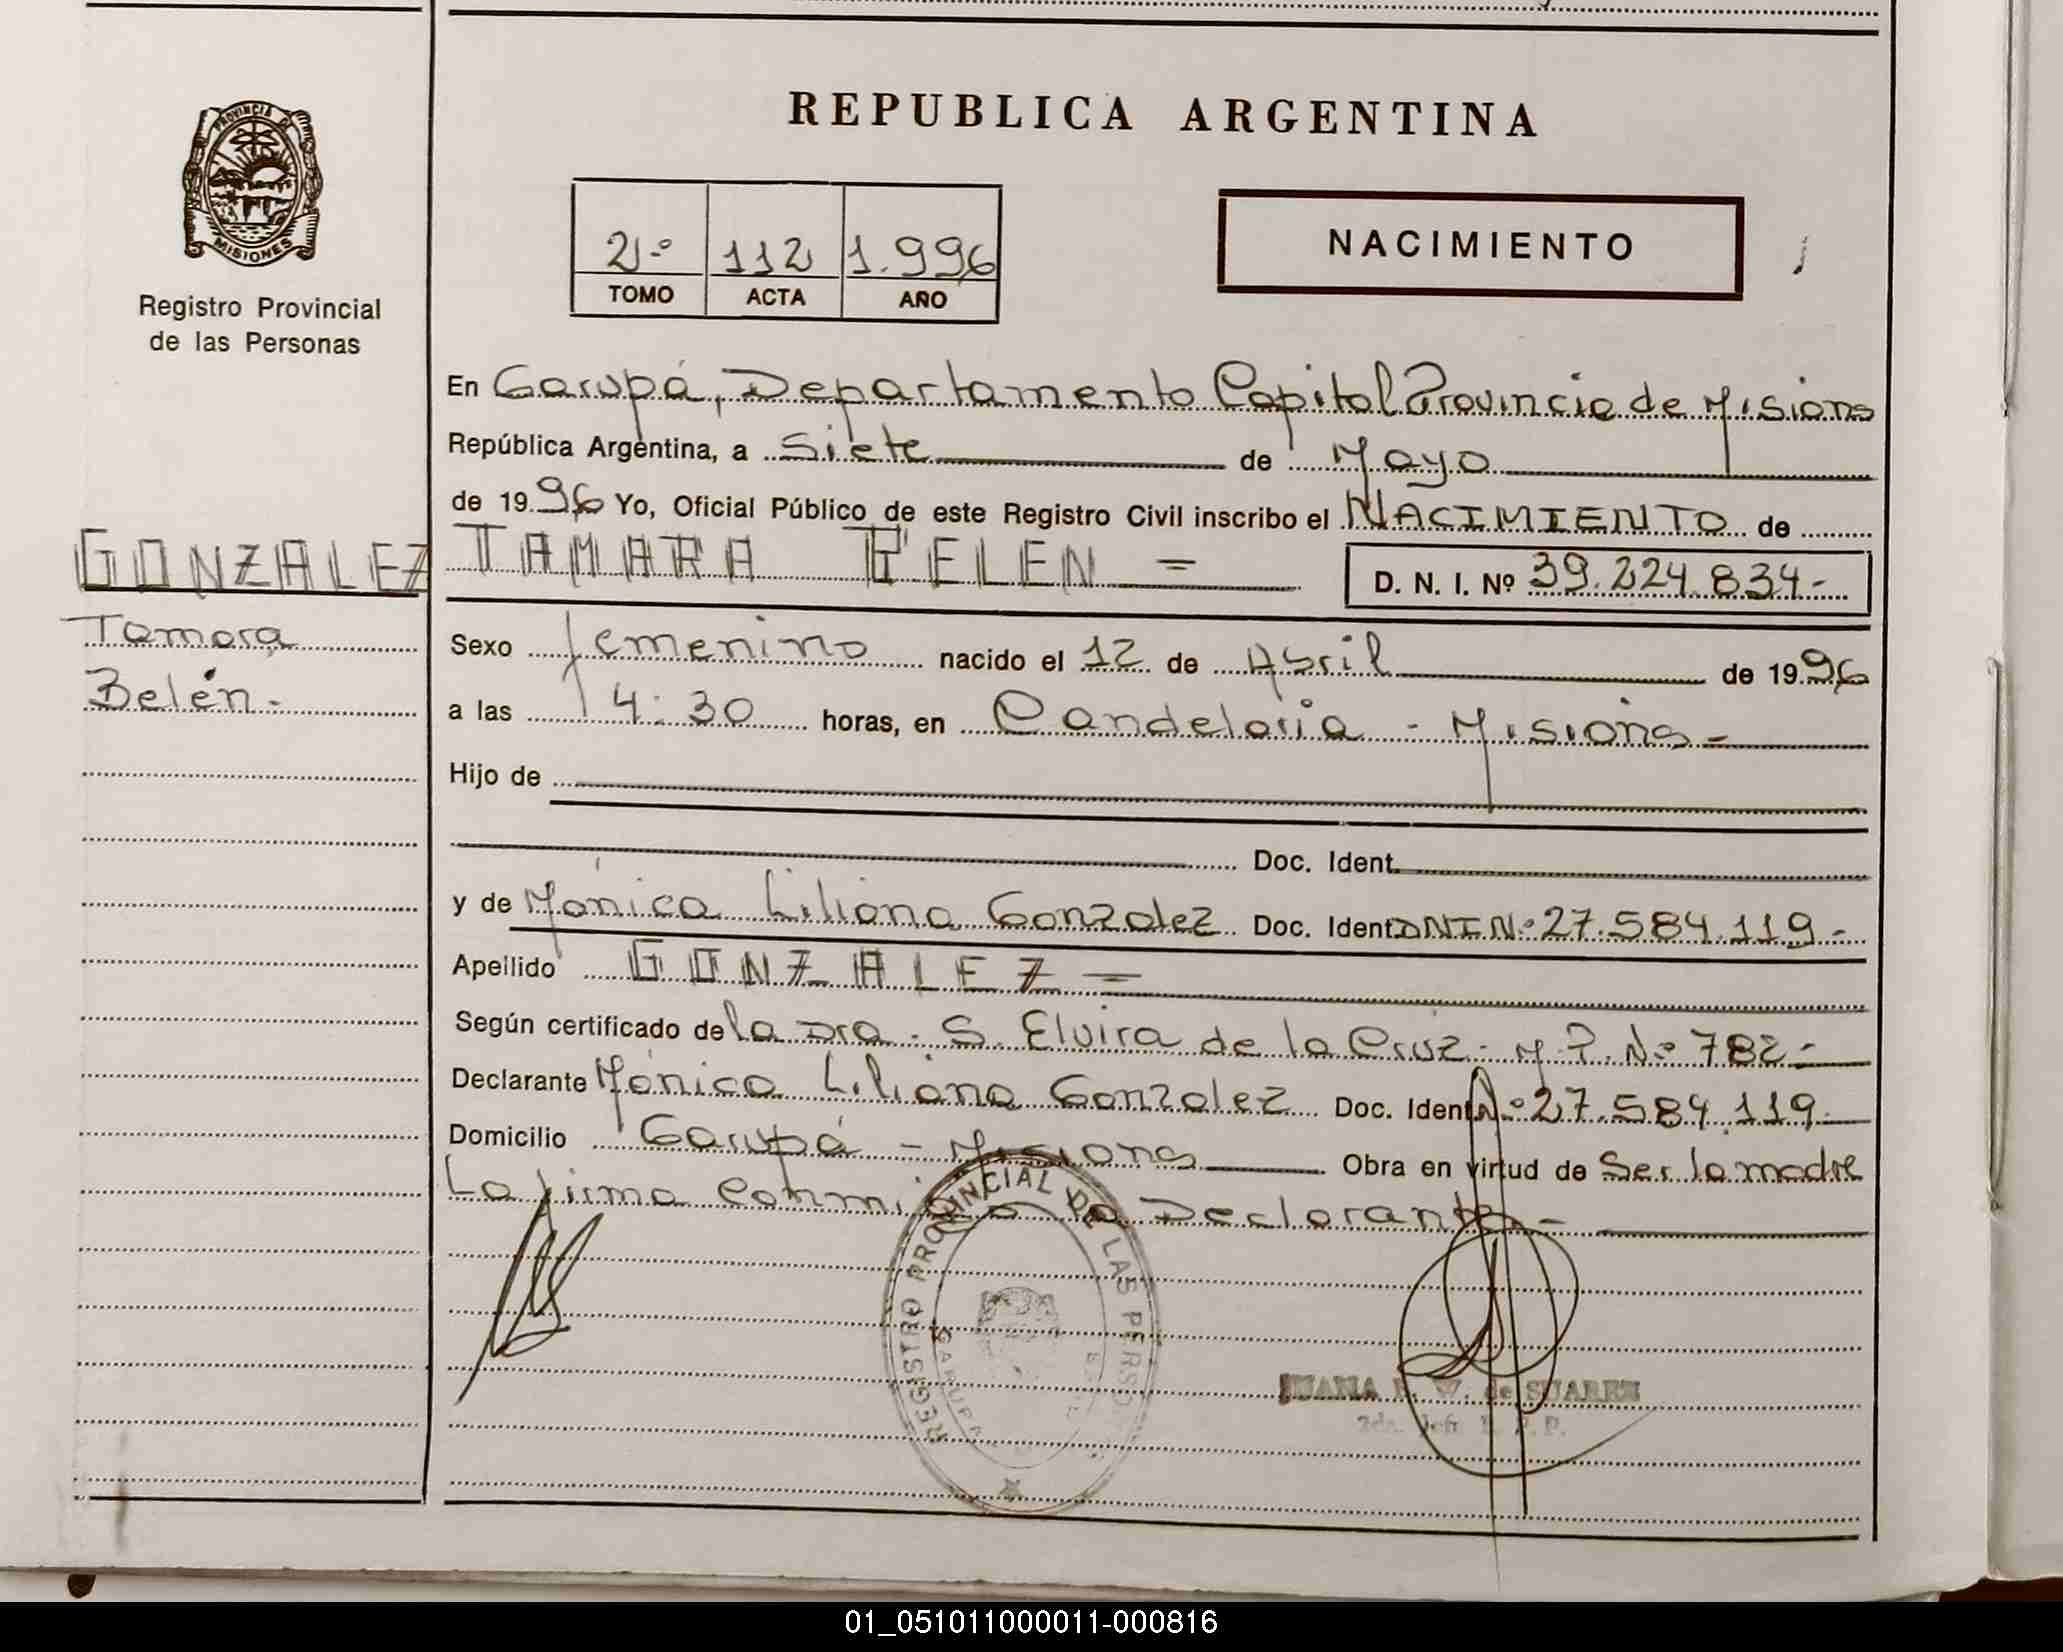 REPUBLICA ARGENTINA
PROVINCIA D
MISIONES
Registro Provincial
de las Personas
2º 112 1.996
TOMO ACTA AÑO
NACIMIENTO
En Garupá, Departamento Capital Provincia de Misiones
República Argentina, a siete de Mayo
de 1996 Yo, Oficial Público de este Registro Civil inscribo el NACIMIENTO de
GONZALEZ TAMARA BELEN =
D. N. I. Nº 39.224.834-
Tamara
Belén.-
Sexo femenino nacido el 12 de Abril de 1996
a las 14:30 horas, en Candelaria - Misiones -
Hijo de
Doc. Ident.
y de Mónica Liliana Gonzalez Doc. Ident DNI Nº 27.584.119-
Apellido GONZALEZ =
Según certificado de la Dra. S. Elvira de la Cruz - M.P. Nº 782-
Declarante Mónica Liliana Gonzalez Doc. Ident Nº 27.584.119-
Domicilio Garupá - Misiones Obra en virtud de Ser la madre
La firma conmigo la Declarante -
REGISTRO PROVINCIAL DE LAS PERSO
GARUPA
W. de SUAREZ
01_051011000011-000816